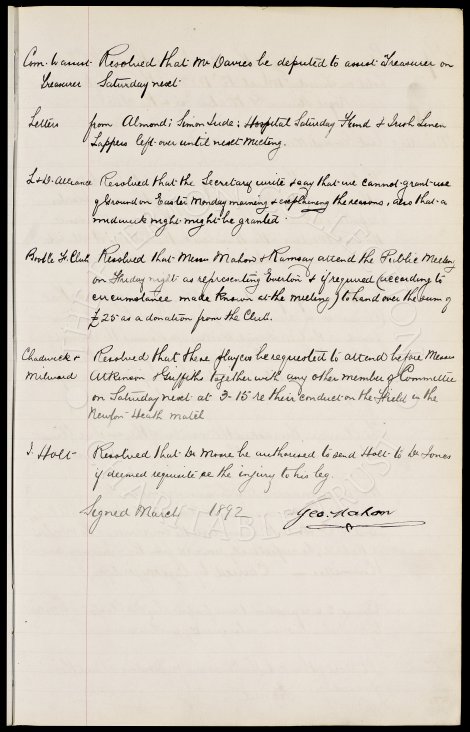 Com. to assist Resolved that Mr Davies be deputed to assist Treasurer on
Treasurer Saturday next
Letters from Almond; Simon Jude; Hospital Saturday Fund & Irish Linen
Lappers left over until next Meeting.
L & D. Alliance Resolved that the Secretary write & say that we cannot grant use
of Ground on Easter Monday morning & explaining the reasons, also that a
midweek night might be granted.
Bootle F. Club Resolved that Messrs Mahon & Ramsay attend the Public Meeting
on Friday night as representing Everton & if required (according to
circumstance made known at the meeting) to hand over the sum of
£25 as a donation from the Club.
Chadwick & Resolved that these players be requested to attend before Messrs
Milward Atkinson & Griffiths together with any other member of Committee
on Saturday next at 3-15 re their conduct on the Field in the
Newton Heath match
J. Holt Resolved that Dr Moore be authorised to send Holt to Dr Jones
if deemed requisite re the injury to his leg.
Signed March 1892 Geo. Mahon